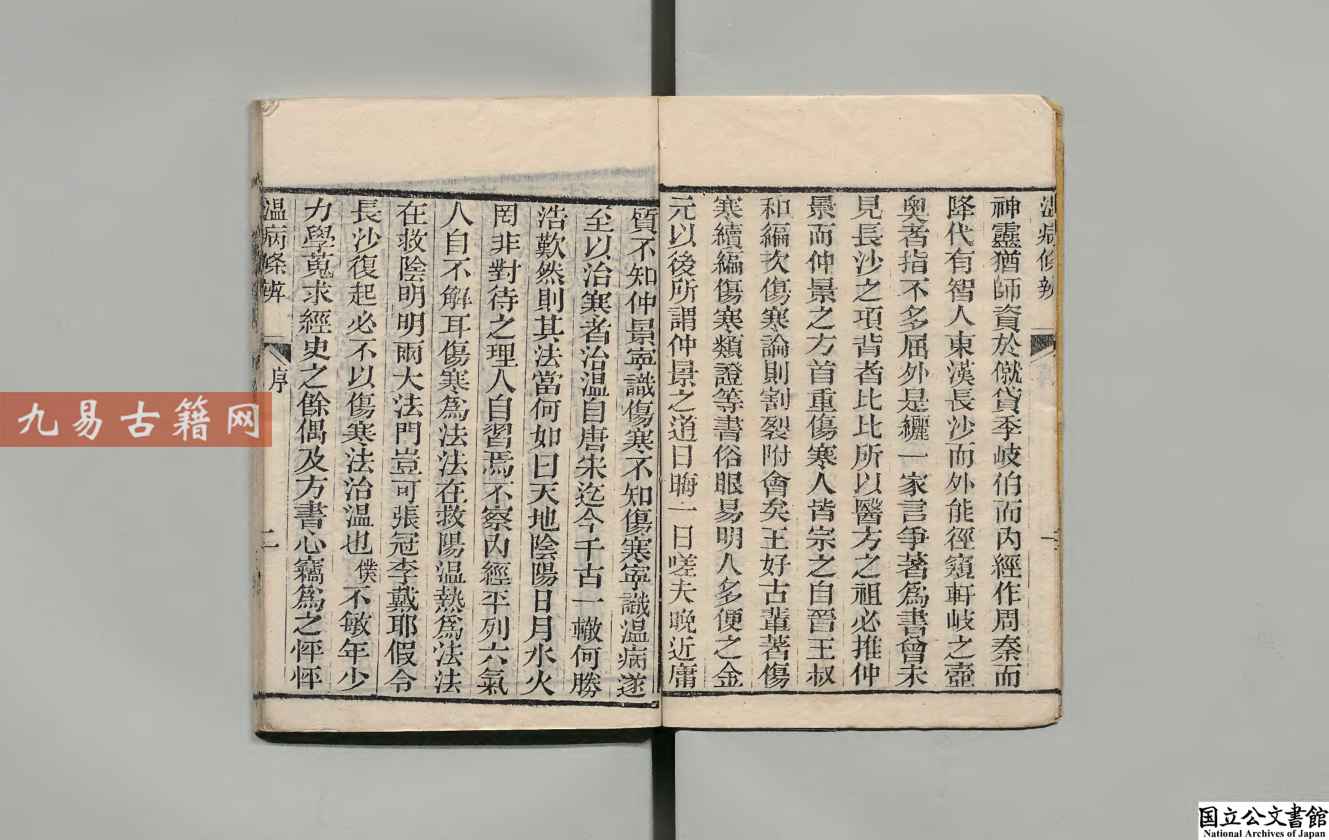 温病條辨
神靈猶師資於僦貸季岐伯而內經作周秦而
降代有智人東漢長沙而外能徑窺軒岐之壼
奧者指不多屈外是纚一家言爭著爲書曾未
見長沙之項背者比比所以醫方之祖必推仲
景而仲景之方首重傷寒人皆宗之自晉王叔
和編次傷寒論則割裂附會矣王好古輩著傷
寒續編傷寒類證等書俗眼易明人多便之金
元以後所謂仲景之道日晦一日嗟夫晚近庸
質不知仲景寧識傷寒不知傷寒寧識温病遂
至以治寒者治温自唐宋迄今千古一轍何勝
浩歎然則其法當何如曰天地陰陽日月水火
罔非對待之理人自習焉不察內經平列六氣
人自不解耳傷寒爲法法在救陽温熱爲法法
在救陰明明兩大法門豈可張冠李戴耶假令
長沙復起必不以傷寒法治温也僕不敏年少
力學蒐求經史之餘偶及方書心竊爲之怦怦
温病條辨 序 二
九易古籍网
国立公文書館
National Archives of Japan